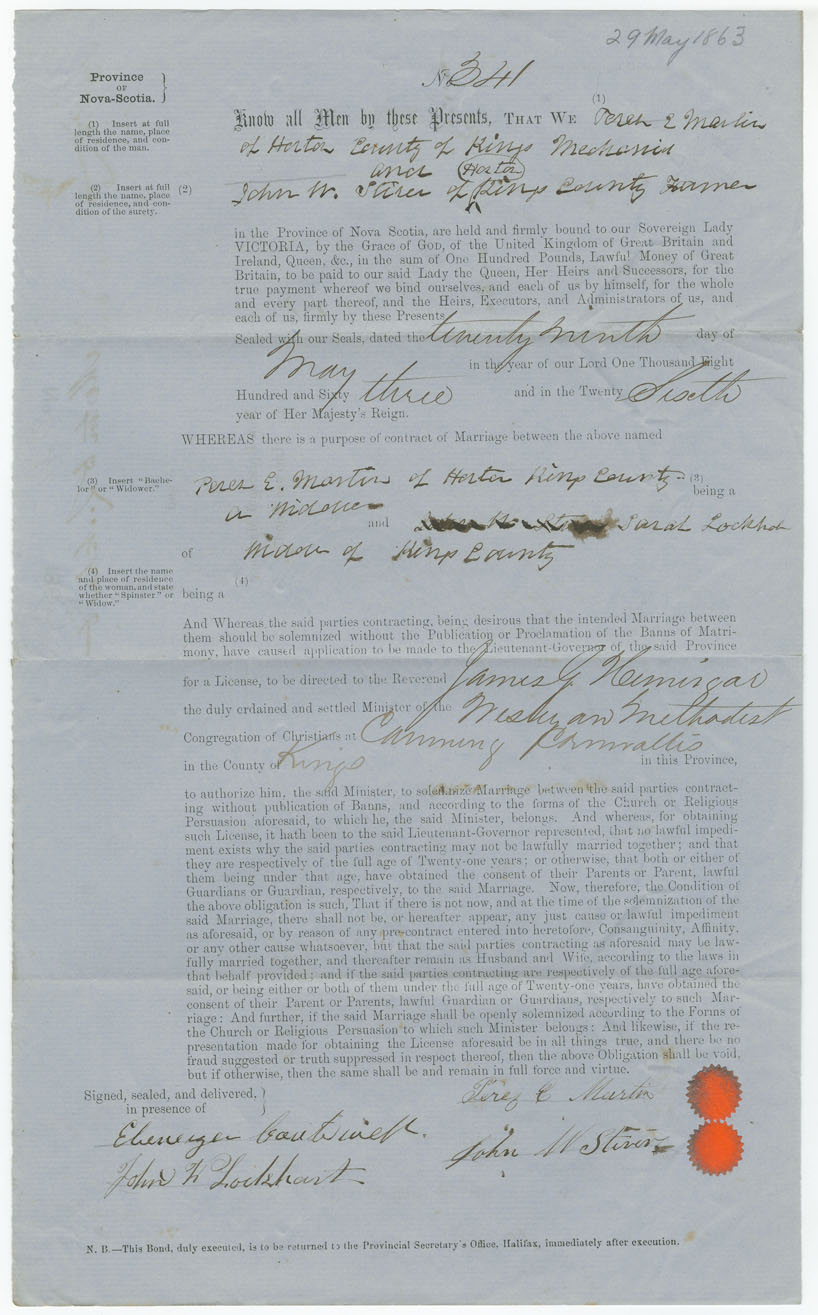 29 May 1863
No 341
Province
OF
Nova-Scotia.
(1) Insert at full
length the name, place
of residence, and con-
dition of the man.
(1)
Know all Men by these Presents, THAT WE Perez E Martin
of Horton County of Kings Mechanic
and Horton
(2) Insert at full
length the name, place
of residence, and con-
dition of the surety.
(2) John W. of Kings County Farmer
in the Province of Nova Scotia, are held and firmly bound to our Sovereign Lady
VICTORIA, by the Grace of GOD, of the United Kingdom of Great Britain and
Ireland, Queen, &c., in the sum of One Hundred Pounds, Lawful Money of Great
Britain, to be paid to our said Lady the Queen, Her Heirs and Successors, for the
true payment whereof we bind ourselves, and each of us by himself, for the whole
and every part thereof, and the Heirs, Executors, and Administrators of us, and
each of us, firmly by these Presents
Sealed with our Seals, dated the twenty ninth day of
May in the year of our Lord One Thousand Eight
Hundred and Sixty three and in the Twenty Sixth
year of Her Majesty's Reign.
WHEREAS there is a purpose of contract of Marriage between the above named
(3) Insert "Bache-
lor" or "Widower."
Perez E. Martin of Horton Kings County (3)
being a
a Widower
and Sarah Lockhart
of Widow of Kings County
(4) Insert the name
and place of residence
of the woman, and state
whether "Spinster" or
"Widow."
(4)
being a
And Whereas the said parties contracting, being desirous that the intended Marriage between
them should be solemnized without the Publication or Proclamation of the Banns of Matri-
mony, have caused application to be made to the Lieutenant-Governor of the said Province
for a License, to be directed to the Reverend James
the duly ordained and settled Minister of the Wesleyan Methodist
Congregation of Christians at Canning Cornwallis
in the County of Kings in this Province,
to authorize him, the said Minister, to solemnize Marriage between the said parties contract-
ing without publication of Banns, and according to the forms of the Church or Religious
Persuasion aforesaid, to which he, the said Minister, belongs. And whereas, for obtaining
such License, it hath been to the said Lieutenant-Governor represented, that no lawful impedi-
ment exists why the said parties contracting may not be lawfully married together; and that
they are respectively of the full age of Twenty-one years; or otherwise, that both or either of
them being under that age, have obtained the consent of their Parents or Parent, lawful
Guardians or Guardian, respectively, to the said Marriage. Now, therefore, the Condition of
the above obligation is such, That if there is not now, and at the time of the solemnization of the
said Marriage, there shall not be, or hereafter appear, any just cause or lawful impediment
as aforesaid, or by reason of any pre-contract entered into heretofore, Consanguinity, Affinity,
or any other cause whatsoever, but that the said parties contracting as aforesaid may be law-
fully married together, and thereafter remain as Husband and Wife, according to the laws in
that behalf provided; and if the said parties contracting are respectively of the full age afore-
said, or being either or both of them under the full age of Twenty-one years, have obtained the
consent of their Parent or Parents, lawful Guardian or Guardians, respectively to such Mar-
riage: And further, if the said Marriage shall be openly solemnized according to the Forms of
the Church or Religious Persuasion to which such Minister belongs: And likewise, if the re-
presentation made for obtaining the License aforesaid be in all things true, and there be no
fraud suggested or truth suppressed in respect thereof, then the above Obligation shall be void,
but if otherwise, then the same shall be and remain in full force and virtue.
Signed, sealed, and delivered,
in presence of
Perez E Martin
Ebenezer
John W
John W Lockhart
N. B.—This Bond, duly executed, is to be returned to the Provincial Secretary's Office, Halifax, immediately after execution.